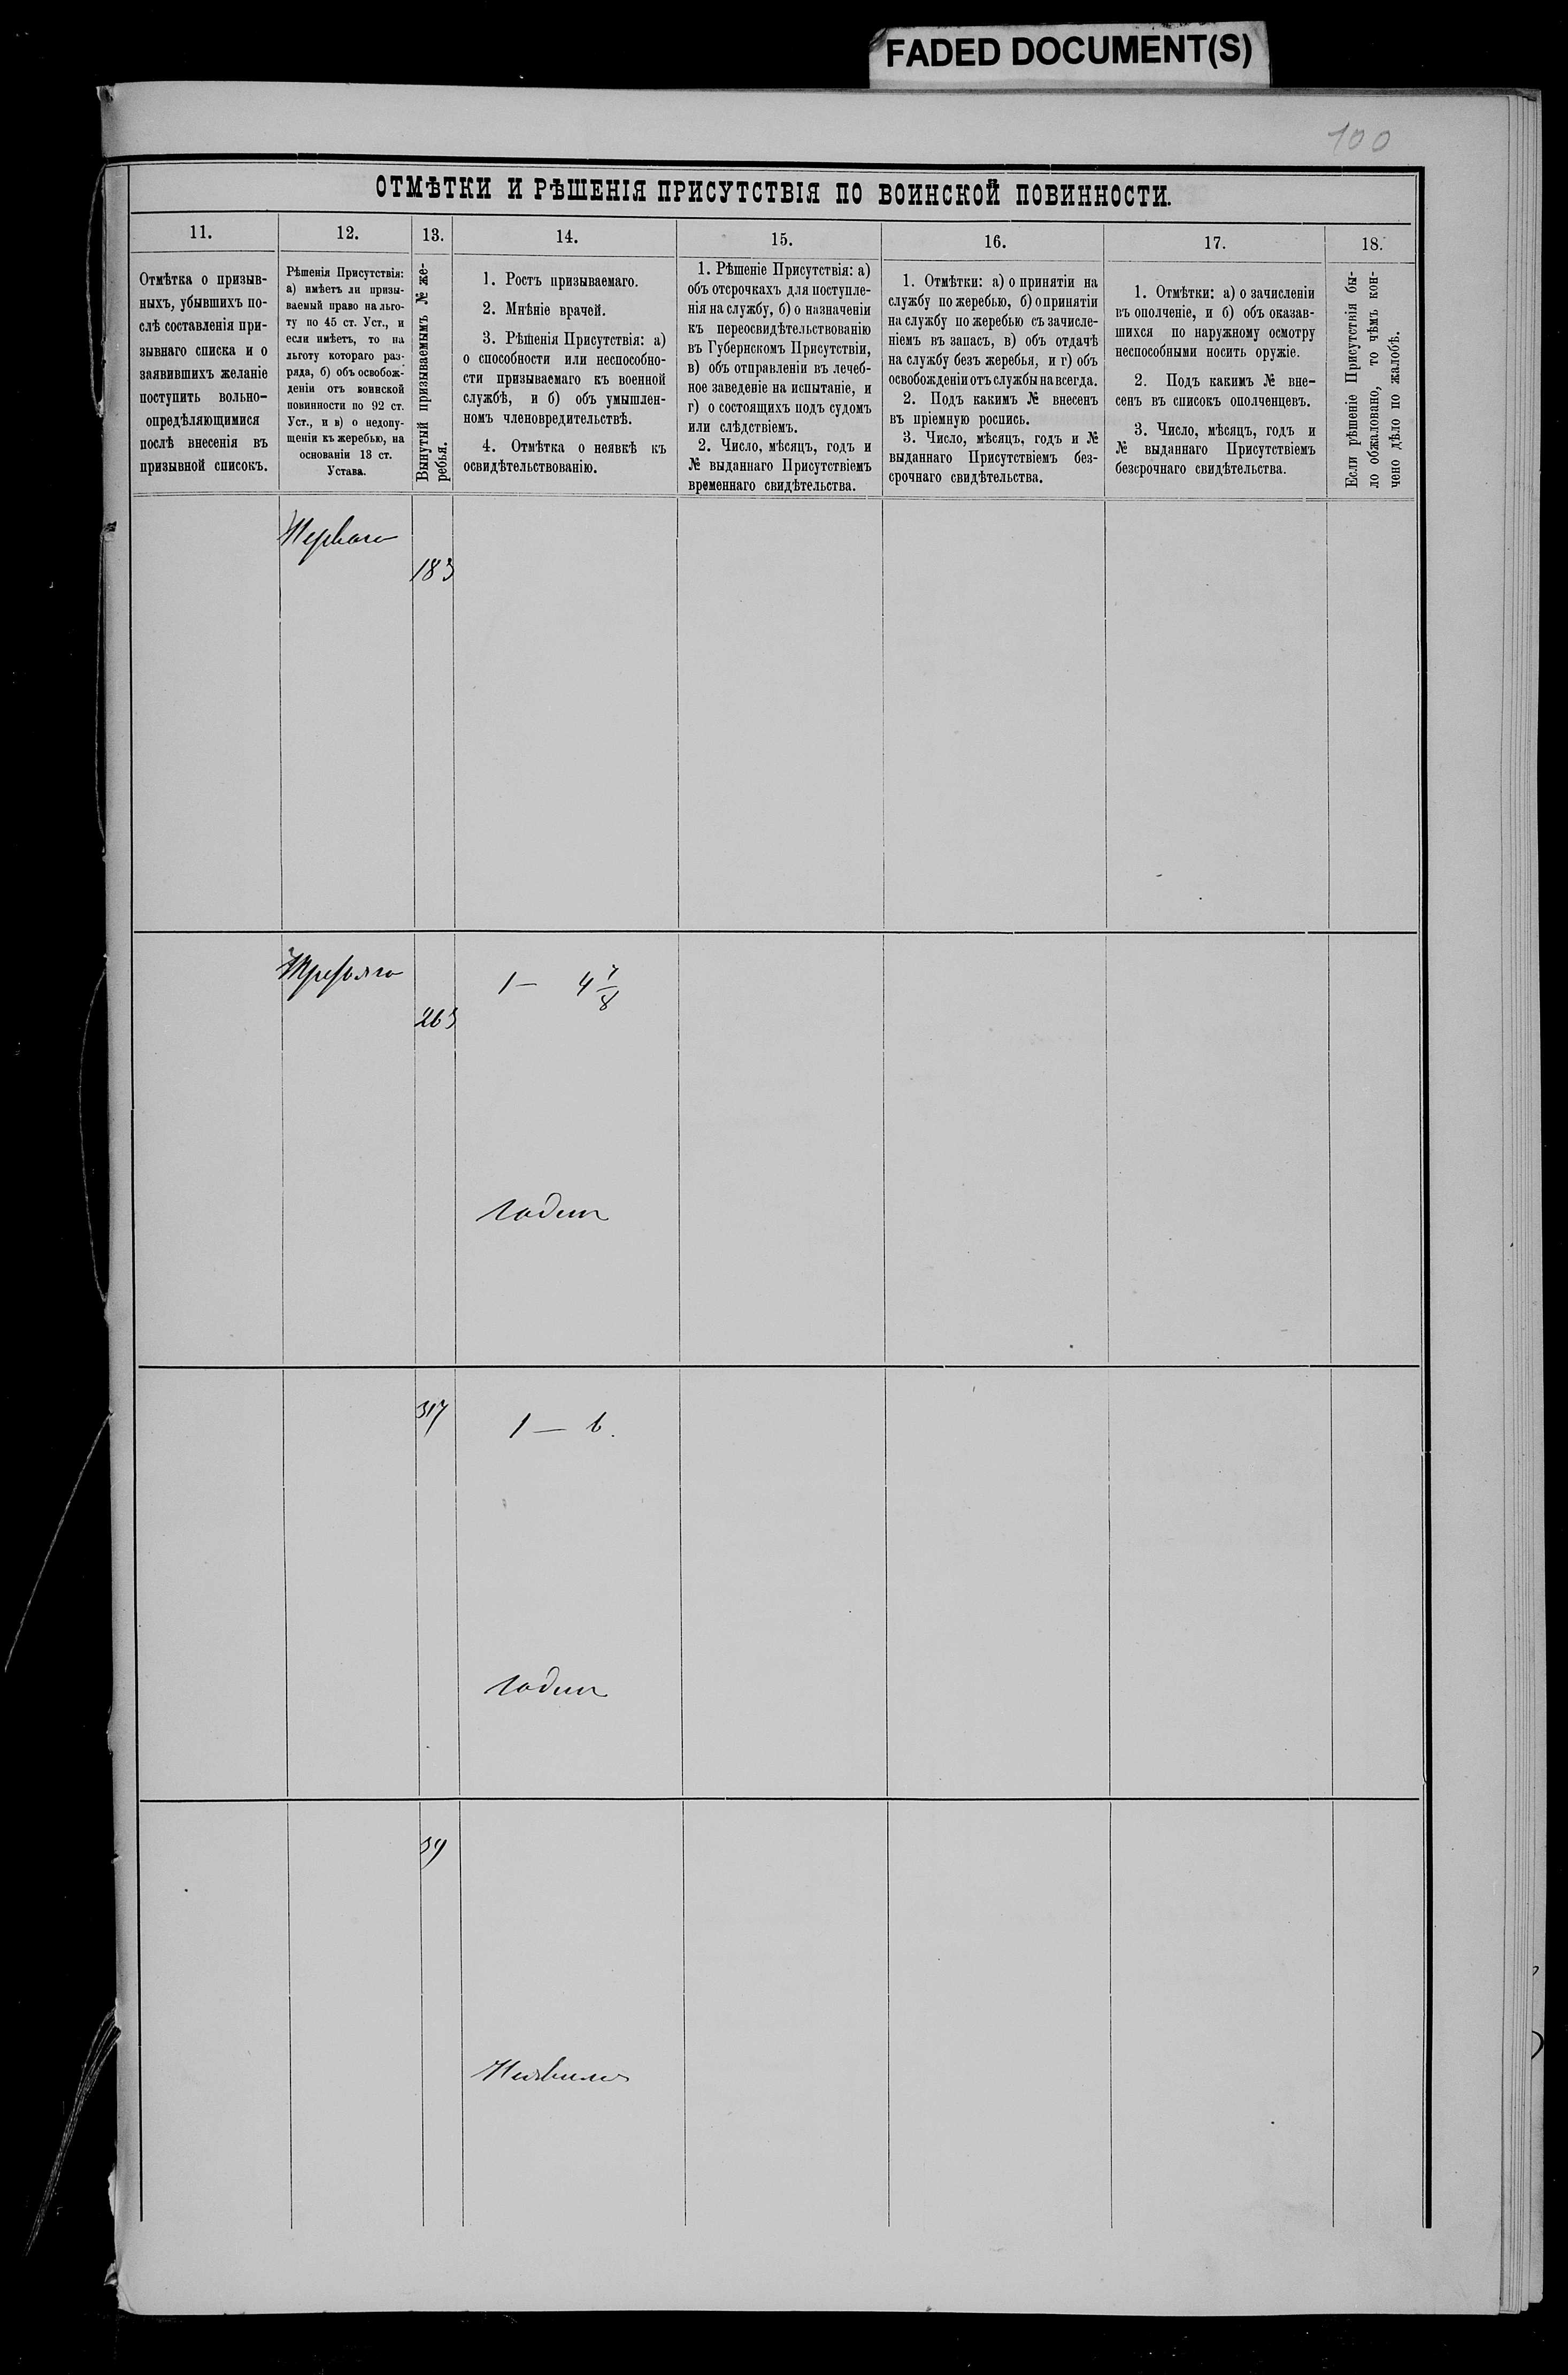 FADED DOCUMENT(S)
100
ОТМѢТКИ И РѢШЕНІЯ ПРИСУТСТВІЯ ПО ВОИНСКОЙ ПОВИННОСТИ.
11.
Отмѣтка о призыв-
ныхъ, убывшихъ по-
слѣ составленія при-
зывнаго списка и о
заявившихъ желаніе
поступить вольно-
опредѣляющимися
послѣ внесенія въ
призывной списокъ.
12.
Рѣшенія Присутствія:
а) имѣетъ ли призы-
ваемый право на льго-
ту по 45 ст. Уст., и
если имѣетъ, то на
льготу котораго раз-
ряда, б) объ освобож-
деніи отъ воинской
повинности по 92 ст.
Уст., и в) о недопу-
щеніи къ жеребью, на
основаніи 13 ст.
Устава.
13.
Вынутый призываемымъ № же-
ребья.
14.
1. Ростъ призываемаго.
2. Мнѣніе врачей.
3. Рѣшенія Присутствія: а)
о способности или неспособно-
сти призываемаго къ военной
службѣ, и б) объ умышлен-
номъ членовредительствѣ.
4. Отмѣтка о неявкѣ къ
освидѣтельствованію.
15.
1. Рѣшеніе Присутствія: а)
объ отсрочкахъ для поступле-
нія на службу, б) о назначеніи
къ переосвидѣтельствованію
въ Губернскомъ Присутствіи,
в) объ отправленіи въ лечеб-
ное заведеніе на испытаніе, и
г) о состоящихъ подъ судомъ
или слѣдствіемъ.
2. Число, мѣсяцъ, годъ и
№ выданнаго Присутствіемъ
временнаго свидѣтельства.
16.
1. Отмѣтки: а) о принятіи на
службу по жеребью, б) о принятіи
на службу по жеребью съ зачисле-
ніемъ въ запасъ, в) объ отдачѣ
на службу безъ жеребья, и г) объ
освобожденіи отъ службы на всегда.
2. Подъ какимъ № внесенъ
въ пріемную роспись.
3. Число, мѣсяцъ, годъ и №
выданнаго Присутствіемъ без-
срочнаго свидѣтельства.
17.
1. Отмѣтки: а) о зачисленіи
въ ополченіе, и б) объ оказав-
шихся по наружному осмотру
неспособными носить оружіе.
2. Подъ какимъ № вне-
сенъ въ списокъ ополченцевъ.
3. Число, мѣсяцъ, годъ и
№ выданнаго Присутствіемъ
безсрочнаго свидѣтельства.
18.
Если рѣшеніе Присутствія бы-
ло обжаловано, то чѣмъ кон-
чено дѣло по жалобѣ.
Перваго
183
Третьяго
263
1 — 4 7/8
Годенъ
317
1 — 6.
Годенъ
39
Неявился